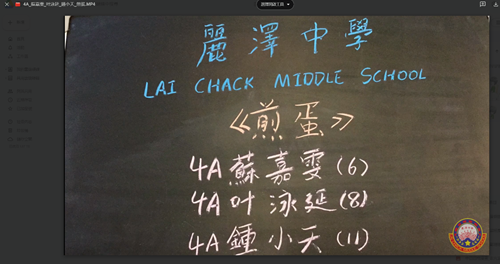 4A_蘇嘉雯_叶泳延_鍾小天_煎蛋.MP4
麗澤中學
LAI CHACK MIDDLE SCHOOL
《煎蛋》
4A 蘇嘉雯(6)
4A 叶泳延(8)
4A 鍾小天(11)